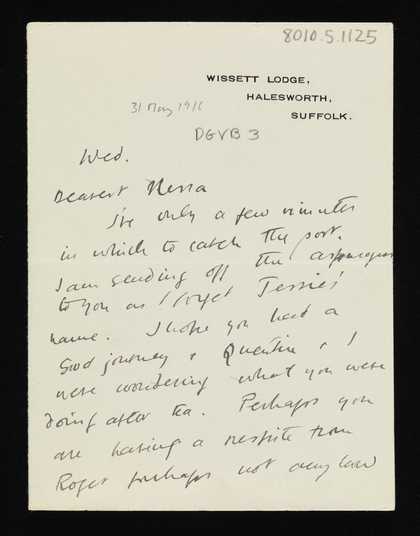 8010.5.1125
WISSETT LODGE,
HALESWORTH,
SUFFOLK.
31 May 1916
DGVB 3
Wed.
Dearest Nessa
I've only a few minutes
in which to catch the post.
I am sending off the asparagus
to you as I forget Jessie's
name. I hope you had a
good journey & Quentin & I
were wondering what you were
doing after tea. Perhaps you
are having a respite from
Roger perhaps not any how